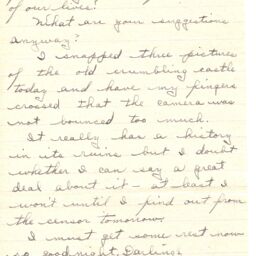 of our lives?
What are your suggestions
anyway?
I snapped three pictures
of the old crumbling castle
today and have my fingers
crossed that the camera was
not bounced too much.
It really has a history
in its ruins but I doubt
whether I can say a great
deal about it - at least I
won't until I find out from
the censor tomorrow.
I must get some rest now
so goodnight, Darling,